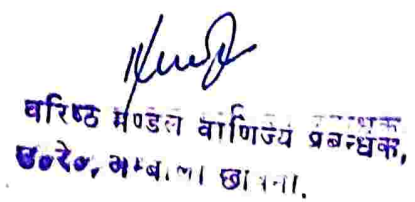 वरिष्ठ मण्डल वाणिज्य प्रबन्धक,
उ०रे०, अम्बाला छावनी.